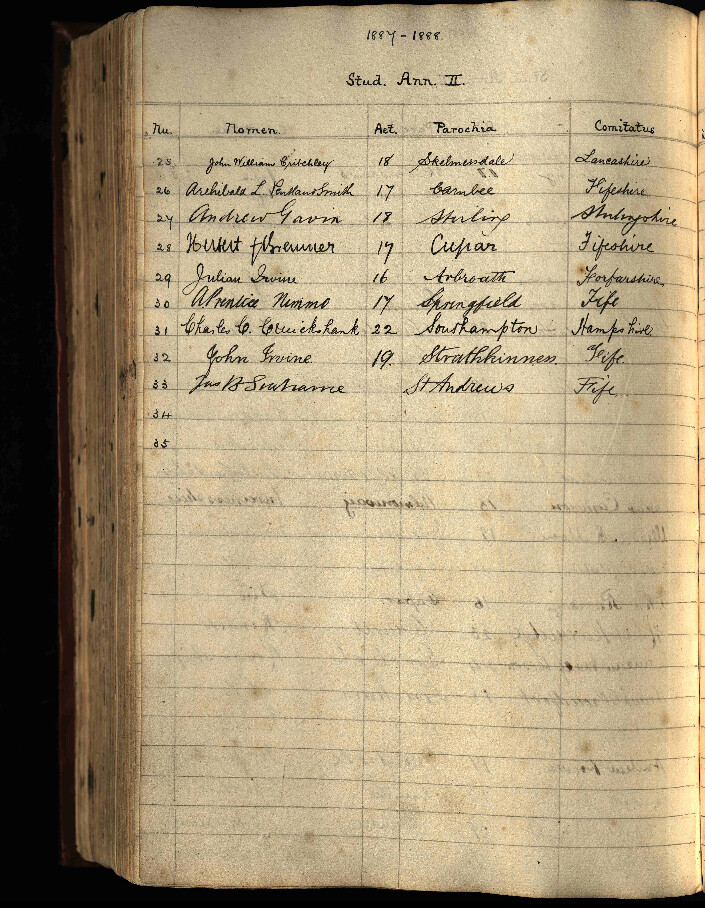 1887-1888
Stud. Ann. II.
Nu. Nomen. Aet. Parochia Comitatus
25 John William Critchley 18 Skelmersdale Lancashire
26 Archibald L. Pentland Smith 17 Carnbee Fifeshire
27 Andrew Gavin 18 Stirling Stirlingshire
28 Herbert J Bremner 17 Cupar Fifeshire
29 Julian Irvine 16 Arbroath Forfarshire
30 A Prentice Nimmo 17 Springfield Fife
31 Charles C. Cruickshank 22 Southampton Hampshire
32 John Irvine 19. Strathkinness. Fife
33 Jas B St Andrews Fife
34
35